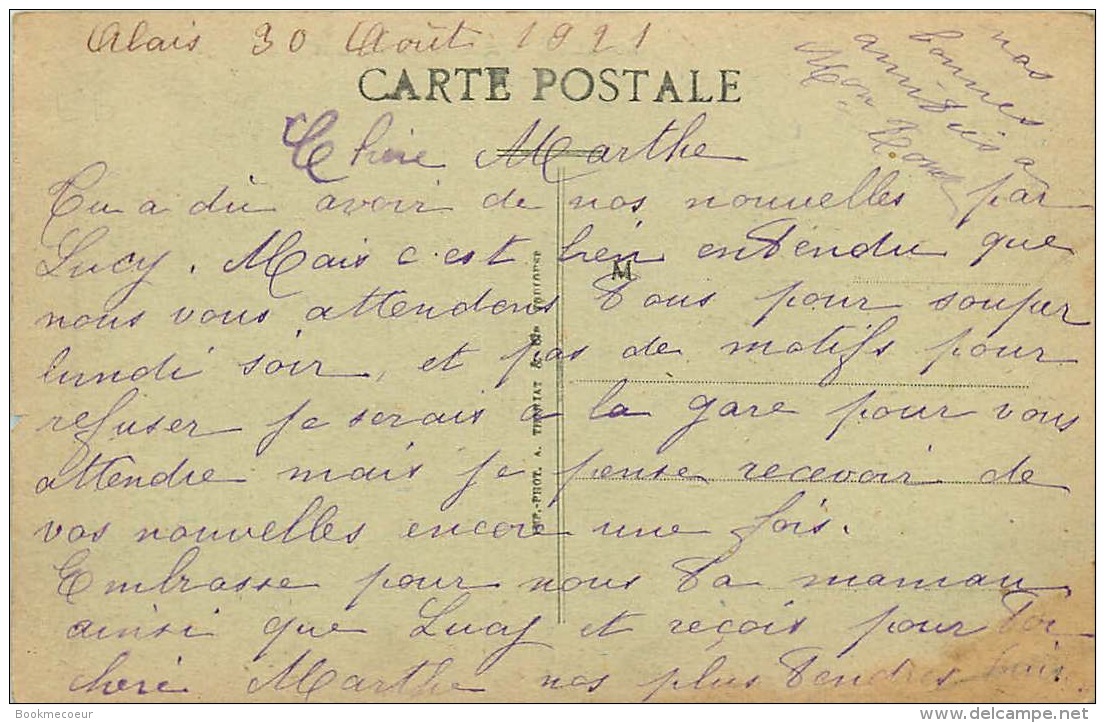 Alais 30 Août 1921
CARTE POSTALE
nos
bonnes
amitiés a
Mon
Chère Marthe
Tu a dù avoir de nos nouvelles par
Lucy. Mais c'est bien entendu que
M
nous vous attendons tous pour souper
lundi soir, et pas de motifs pour
refuser je serais a la gare pour vous
attendre mais je pense recevoir de
vos nouvelles encore une fois.
Embrasse pour nous ta maman
ainsi que Lucy et reçois pour toi
chère Marthe nos plus tendres
PHOT. A. TOULOUSE
Bookmecoeur
delcampe.net